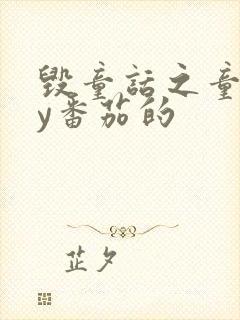 毁童话之童
y番茄的
芷夕